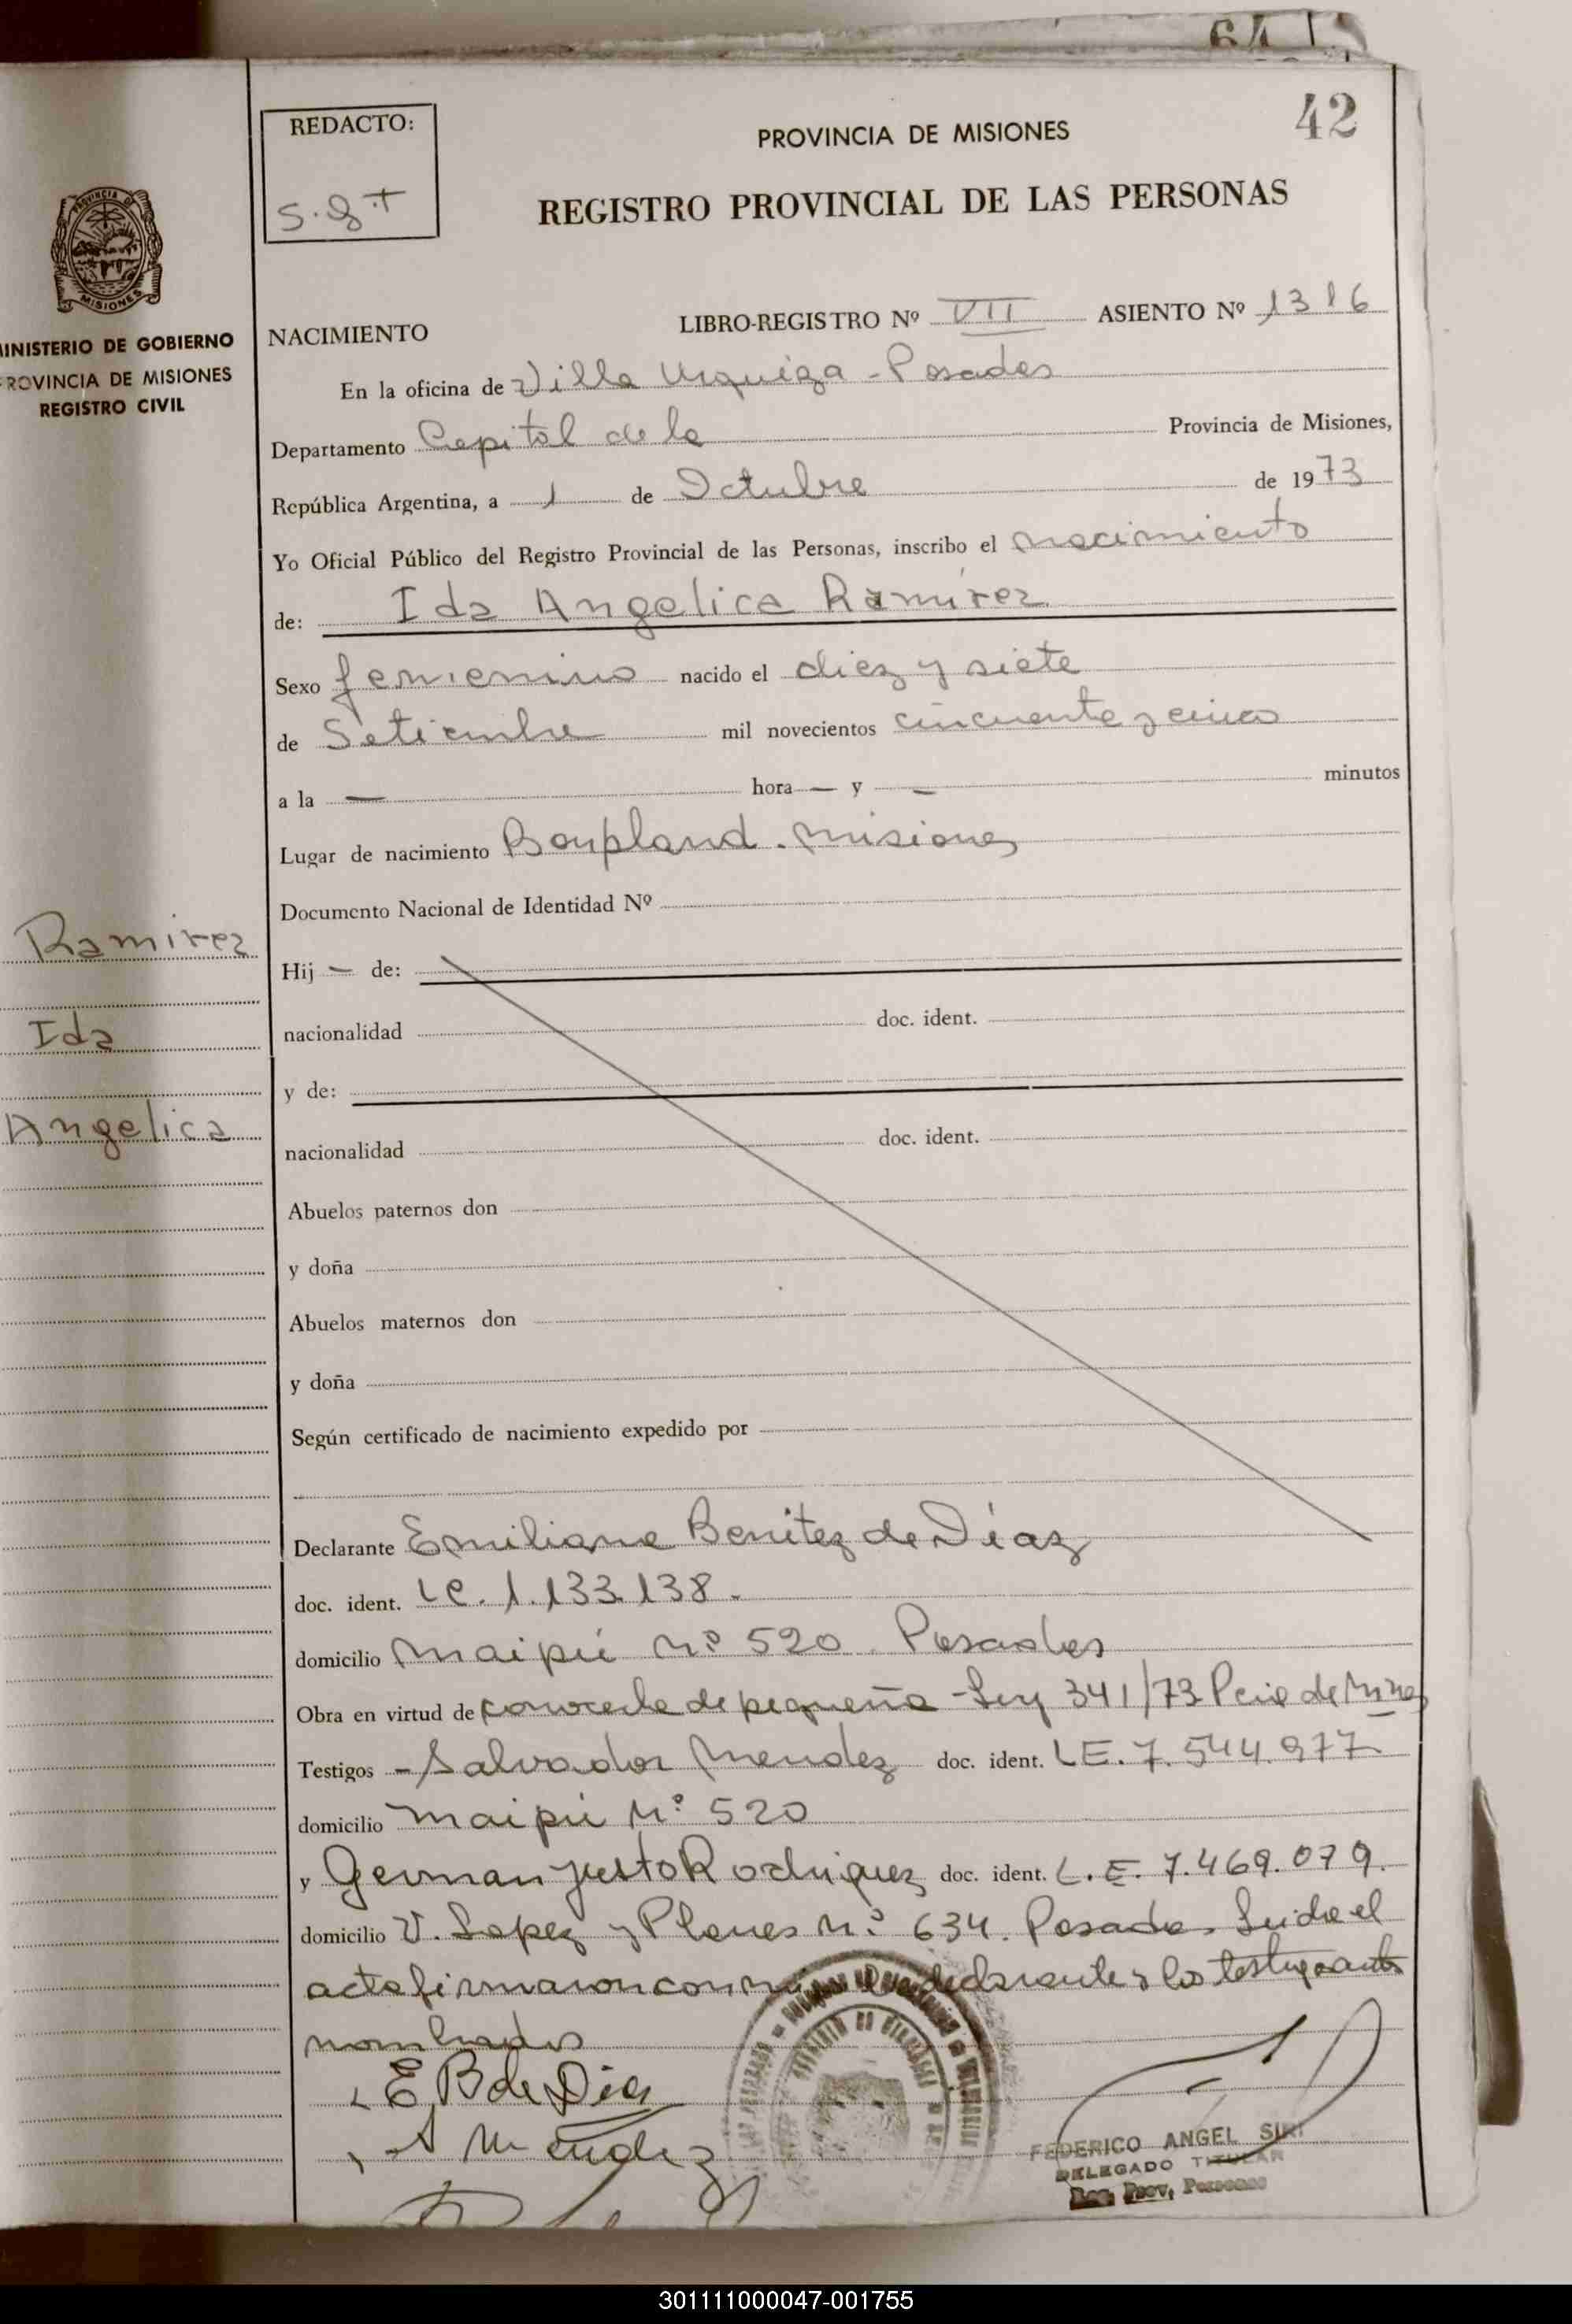 64
42
REDACTO:
S.G.T
PROVINCIA DE MISIONES
REGISTRO PROVINCIAL DE LAS PERSONAS
PROVINCIA DE
MISIONES
MINISTERIO DE GOBIERNO
PROVINCIA DE MISIONES
REGISTRO CIVIL
NACIMIENTO LIBRO-REGISTRO Nº VII ASIENTO Nº 1316
En la oficina de Villa Urquiza - Posadas
Departamento Capital de la Provincia de Misiones,
República Argentina, a 1 de Octubre de 1973
Yo Oficial Público del Registro Provincial de las Personas, inscribo el nacimiento
de: Ida Angelica Ramirez
Sexo femenino nacido el diez y siete
de Setiembre mil novecientos cincuenta y cinco
a la — hora — y — minutos
Lugar de nacimiento Bonpland. Misiones
Documento Nacional de Identidad Nº
Hij — de:
nacionalidad doc. ident.
y de:
nacionalidad doc. ident.
Abuelos paternos don
y doña
Abuelos maternos don
y doña
Según certificado de nacimiento expedido por
Ramirez
Ida
Angelica
Declarante Emiliana Benitez de Díaz
doc. ident. LC. 1.133.138.
domicilio Maipú Nº 520 Posadas
Obra en virtud de conocerla de pequeña - Ley 341/73 Pcia de Mnes
Testigos - Salvador Mendez doc. ident. LE. 7.544.977
domicilio Maipú Nº 520
y German Justo Rodriguez doc. ident. L.E. 7.469.079.
domicilio V. Lopez y Planes Nº 634. Posadas. Leida el
acta firmaron conmigo la declarante y los testigos antes
nombrados
E B de Díaz
S Mendez
FEDERICO ANGEL SIRI
DELEGADO TITULAR
Reg. Prov. Personas
301111000047-001755